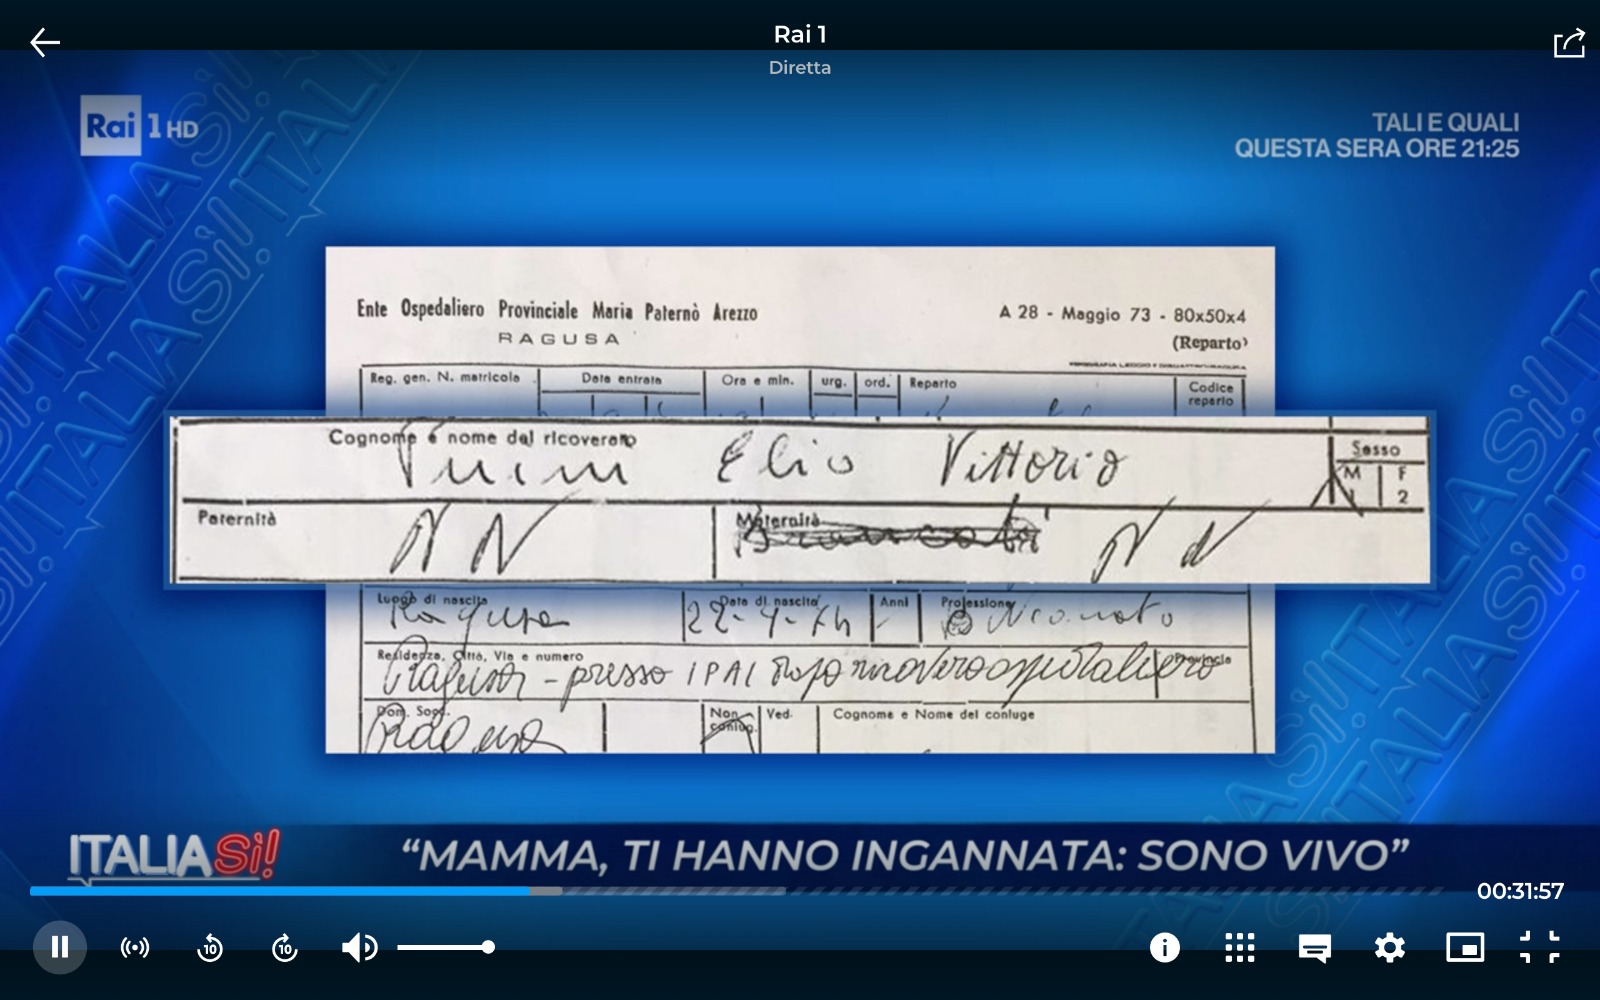 Rai 1
Diretta
Rai 1 HD
TALI E QUALI
QUESTA SERA ORE 21:25
Ente Ospedaliero Provinciale Maria Paternò Arezzo
RAGUSA
A 28 - Maggio 73 - 80x50x4
(Reparto)
Reg. gen. N. matricola Data entrata Ora e min. urg. ord. Reparto Codice reparto
Cognome e nome del ricoverato
Elio Vittorio
Sesso
M F
1 2
Paternità N N Maternità N N
Luogo di nascita Data di nascita Anni Professione
Ragusa 22-4-74 Neonato
Residenza, Città, Via e numero Provincia
Ragusa - presso IPAI dopo ricovero ospedaliero
Dom. Sogg. Non coniug. Ved. Cognome e Nome del coniuge
Ragusa
ITALIA Sì!
“MAMMA, TI HANNO INGANNATA: SONO VIVO”
00:31:57
10 10